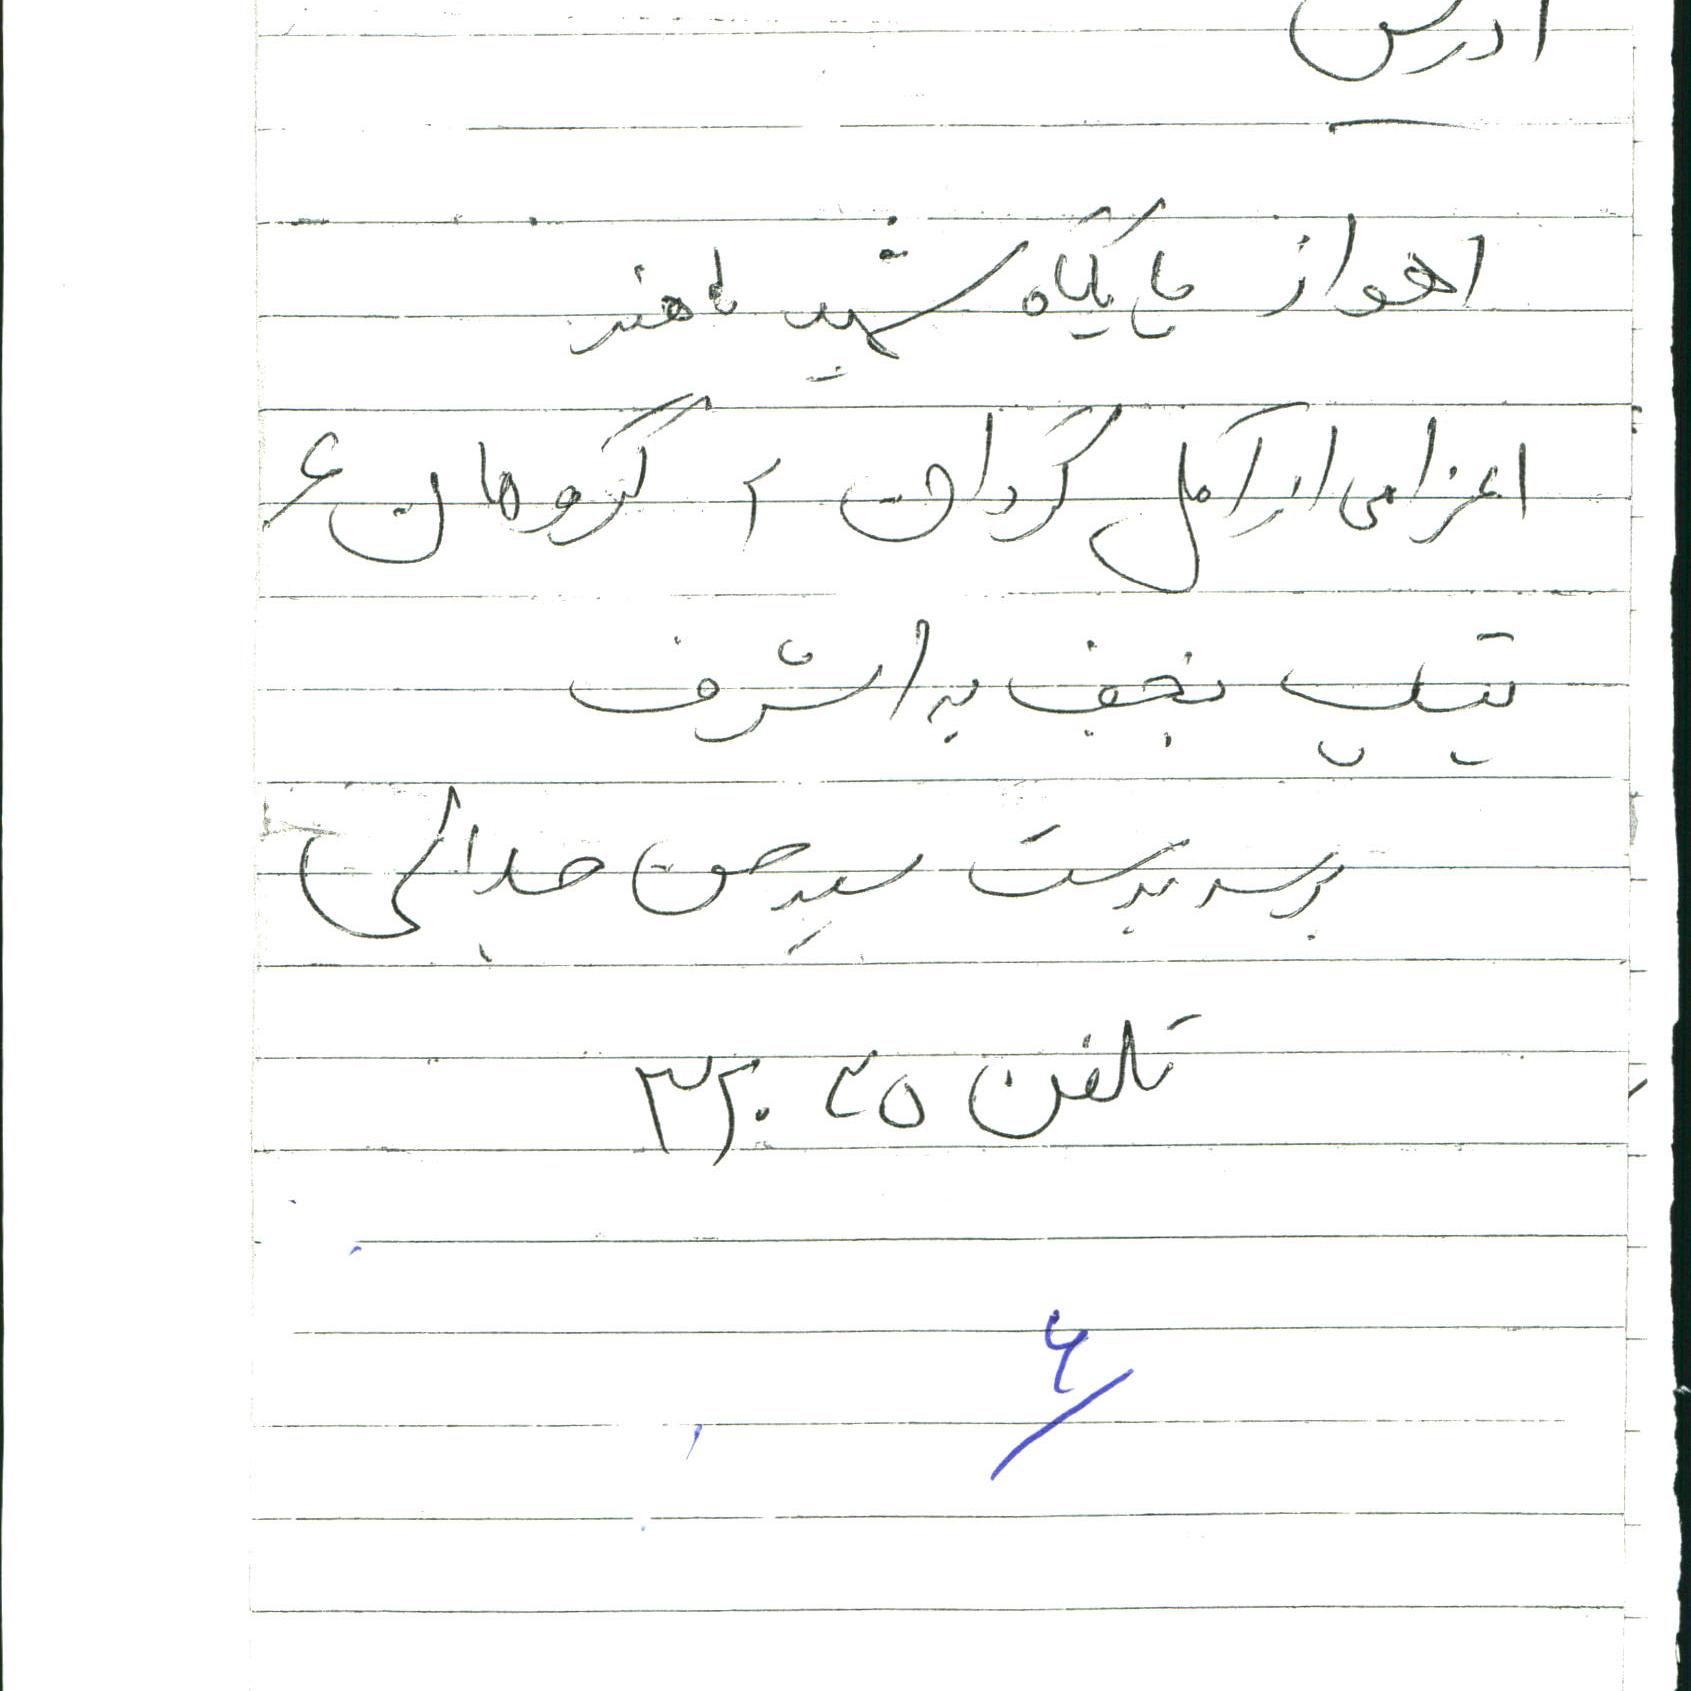 ادرس
اهواز پایگاه شهید باهنر
اعزامی از آمل گردان ۲ گروهان ۶
تیپ نجف اشرف
برسد بدست سید حسن جدائی
تلفن ۲۵ ۳۲۰
۶